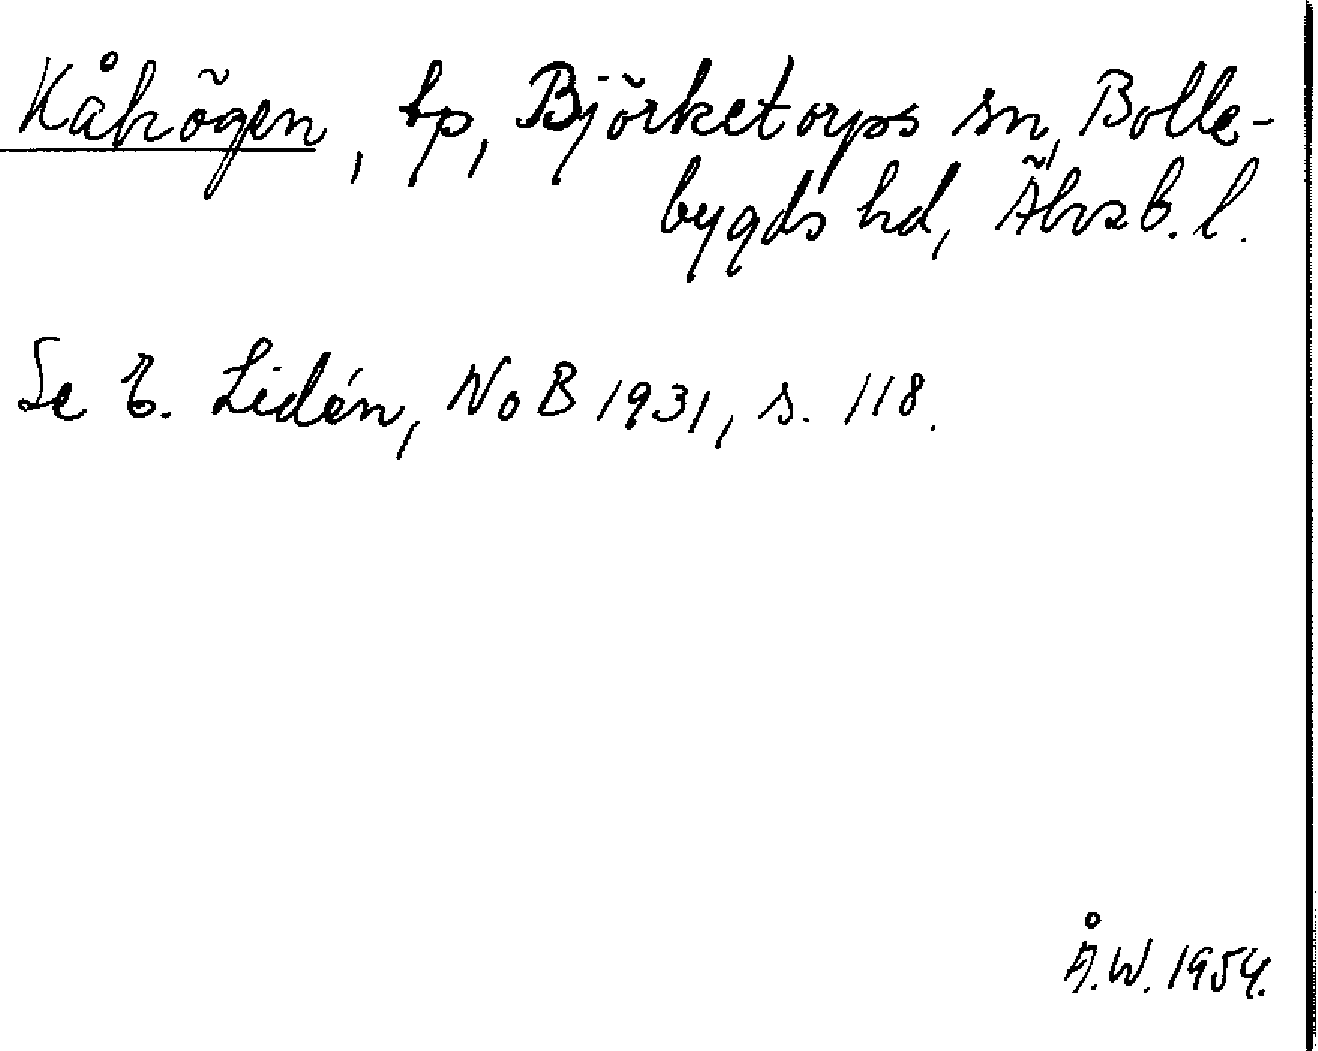 Kåhögen, tp, Björketorps sn, Bolle-
bygds hd, Älvsb. l.
Se E. Lidén, NoB 1931, s. 118.
Å.W. 1954.